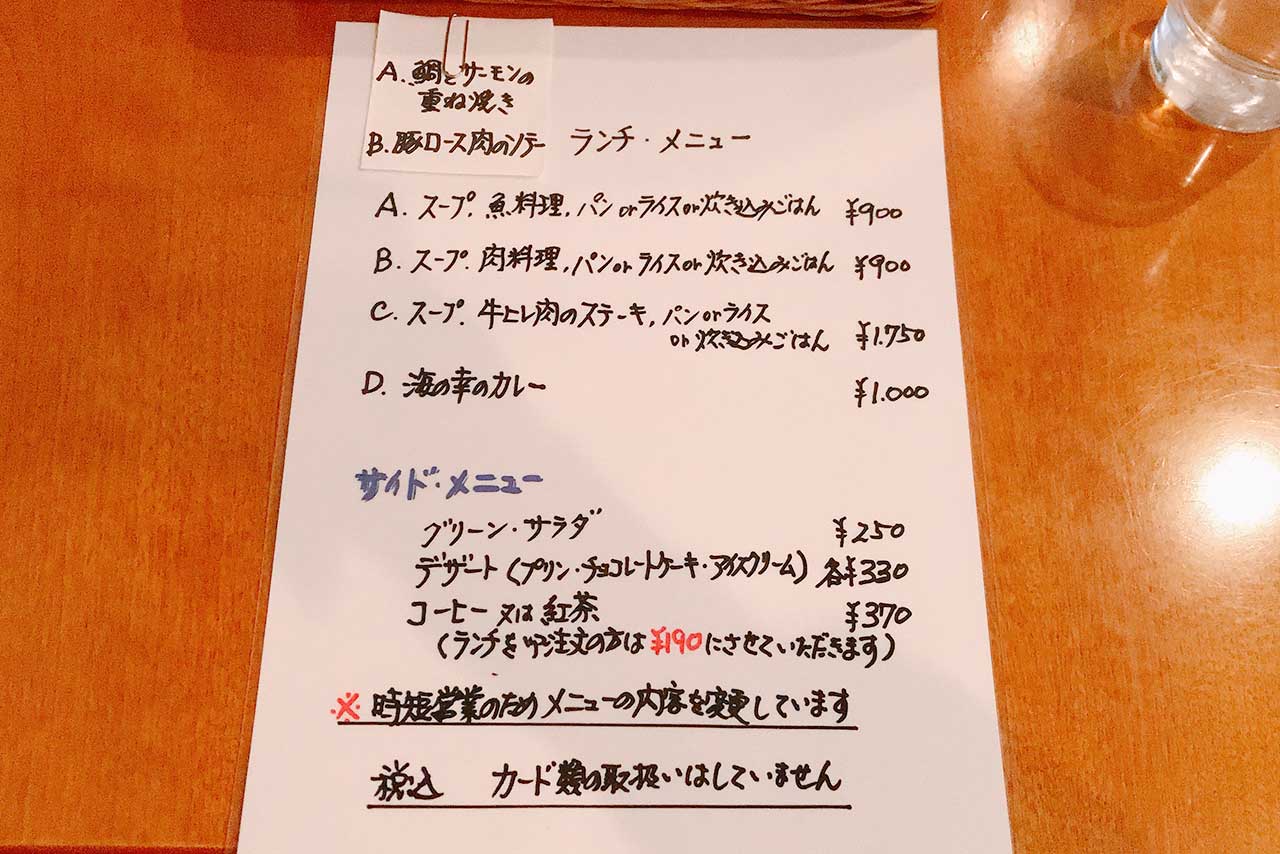 A. 鯛とサーモンの
重ね焼き
B. 豚ロース肉のソテー
ランチ・メニュー
A. スープ. 魚料理, パン or ライス or 炊き込みごはん ¥900
B. スープ. 肉料理, パン or ライス or 炊き込みごはん ¥900
C. スープ. 牛ヒレ肉のステーキ, パン or ライス
or 炊き込みごはん ¥1.750
D. 海の幸のカレー ¥1.000
サイド・メニュー
グリーン・サラダ ¥250
デザート (プリン・チョコレートケーキ・アイスクリーム) 各¥330
コーヒー 又は 紅茶 ¥370
(ランチをご注文の方は ¥190 にさせていただきます)
※ 時短営業のためメニューの内容を変更しています
税込 カード類の取扱いはしていません